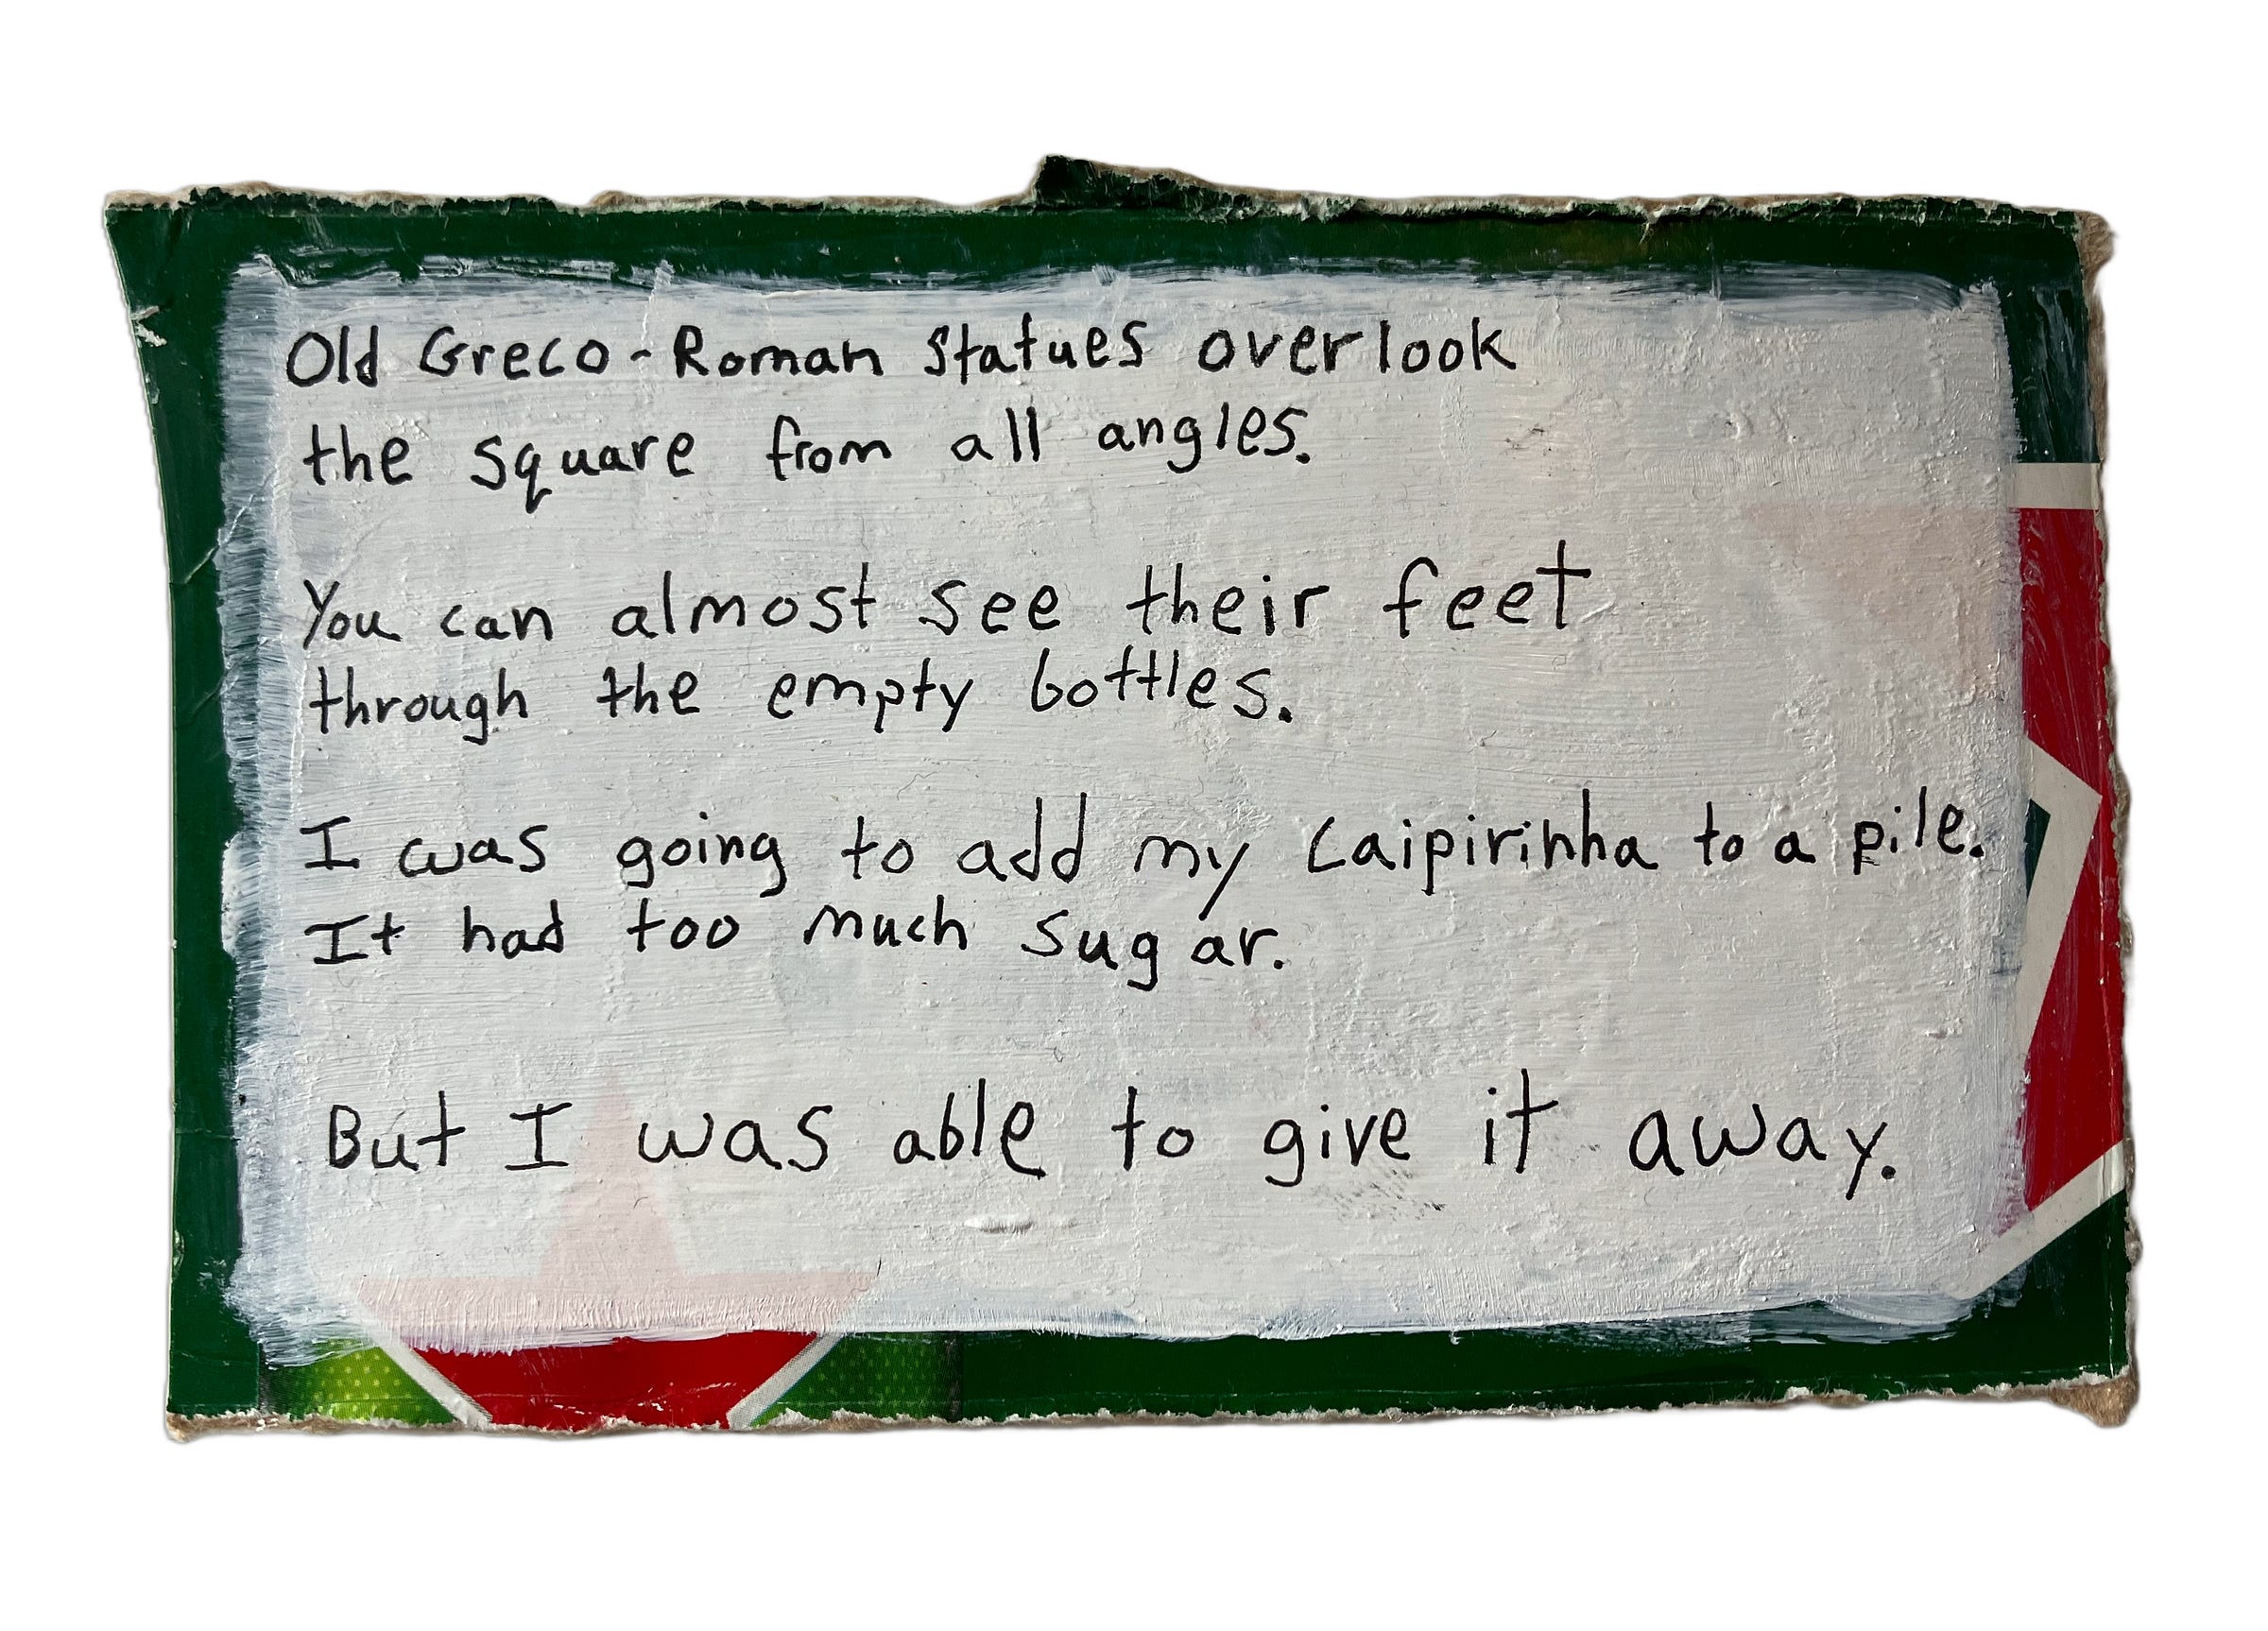 Old Greco-Roman Statues overlook
the square from all angles.
You can almost see their feet
through the empty bottles.
I was going to add my Caipirinha to a pile.
It had too much sugar.
But I was able to give it away.